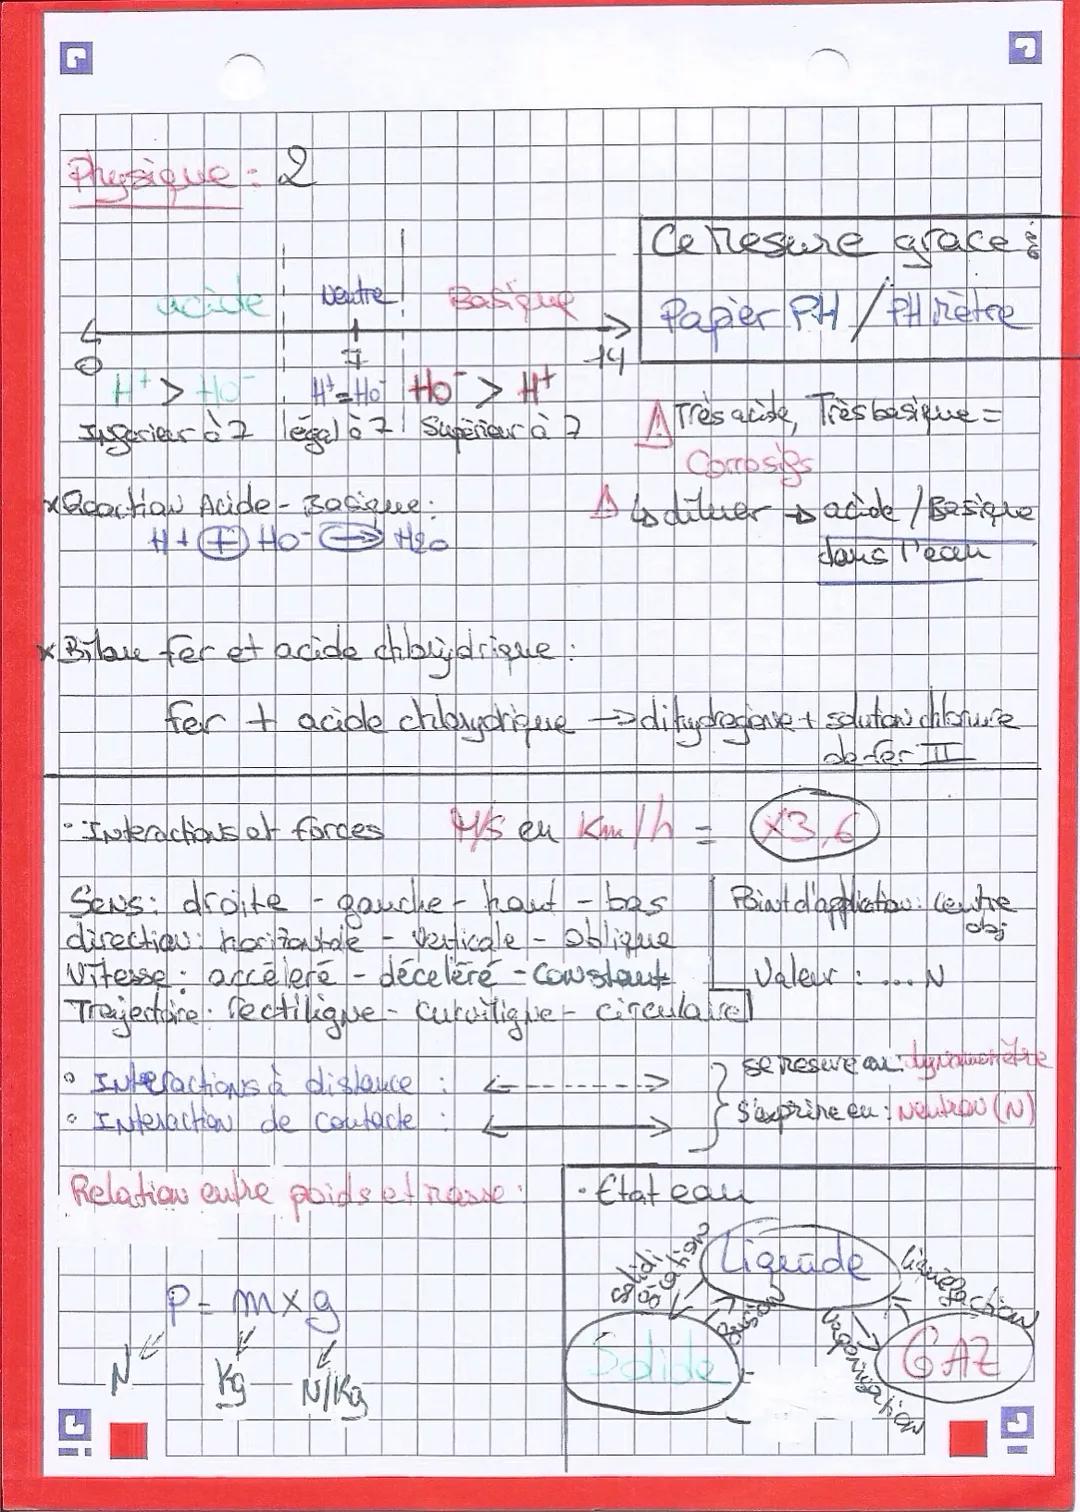 Physique : 2
Ce mesure grace :
Papier PH / PH mètre
acide Neutre Basique
0 7 14
H+ > HO- H+ = HO- HO- > H+
Inférieur à 7 égal à 7 Supérieur à 7
⚠ Très acide, Très basique =
Corrosifs
x Reaction Acide - Basique :
H+ + HO- → H2O
⚠ ↳ diluer → acide / Basique
dans l'eau
x Bilan fer et acide chlorydrique :
fer + acide chlorydrique → dihydrogène + solution chlorure
de fer II
· Interactions et forces M/S en Km/h = x3,6
Sens : droite - gauche - haut - bas
direction : horizontale - verticale - oblique
Vitesse : accéléré - décéléré - constante
Trajectoire : rectiligne - curviligne - circulaire
Point d'application : centre
obj
Valeur : ... N
• Interactions à distance : <------>
• Interaction de contacte : <——>
se mesure au : dynamomètre
s'exprime en : Neutron (N)
Relation entre poids et masse :
P = m x g
N Kg N/Kg
· Etat eau
Liquide
solidification
fusion
liquéfaction
vaporisation
Solide
GAZ